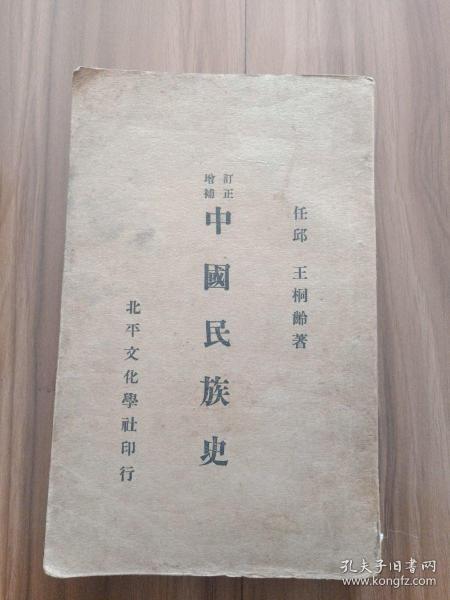 任邱 王桐齡著
訂正
增補
中國民族史
北平文化學社印行
孔夫子旧书网
www.kongfz.com